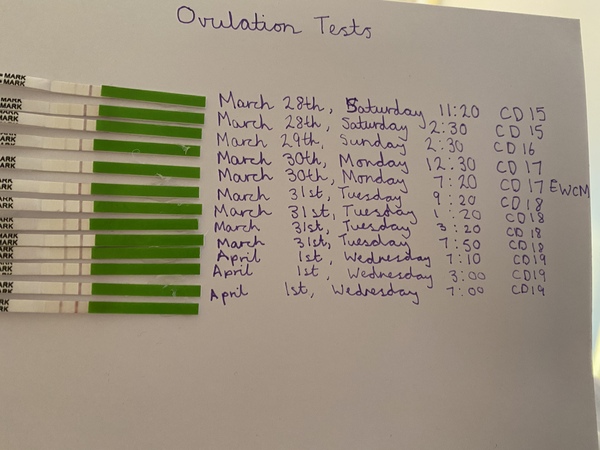 Ovulation Tests
MARK
MARK
March 28th, Saturday 11:20 CD 15
March 28th, Saturday 2:30 CD 15
March 29th, Sunday 2:30 CD 16
March 30th, Monday 12:30 CD 17
March 30th, Monday 7:20 CD 17 EWCM
March 31st, Tuesday 9:20 CD 18
March 31st, Tuesday 1:20 CD 18
March 31st, Tuesday 3:20 CD 18
March 31st, Tuesday 7:50 CD 18
April 1st, Wednesday 7:10 CD19
April 1st, Wednesday 3:00 CD19
April 1st, Wednesday 7:00 CD19